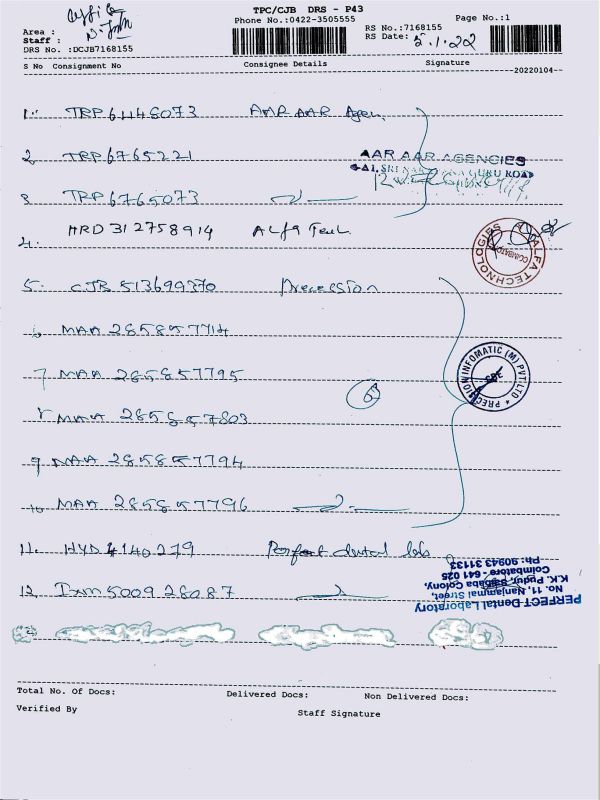 TPC/CJB DRS - P43
Phone No.:0422-3505555
Page No.:1
Area :
Staff :
DRS No. :DCJB7168155
RS No.:7168155
RS Date: 5.1.22
S No Consignment No Consignee Details Signature
20220104
1. TRP 61148073 AAR AAR Agen.
2. TRP 6765221
AAR AAR AGENCIES
3. TRP 6765073
4. HRD 312758914 Alfa Tech
ALFA TECHNOLOGIES COIMBATORE
5. CJB 513699370 Precession
6 MAA 285857714
7 MAA 285857795
PRECISION INFOMATIC (M) PVT LTD CBE
8 MAA 285857803
9 MAA 285857794
10 MAA 285857796
11. HYD 4140279 Perfect dental lab
12. Ixm 500928087
PERFECT Dental Laboratory
No. 11, Nanjammal Street,
K.K. Pudur, Saibaba Colony,
Coimbatore - 641 025
Ph: 90943 31133
Total No. Of Docs: Delivered Docs: Non Delivered Docs:
Verified By Staff Signature